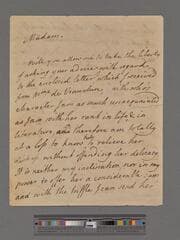 Madam.
Will you allow me to take the liberty
of asking your advice with regard
to the enclosed letter which I received
from Mme de Vraincour, with whose
character I am as much unacquainted
as I am with her rank in life & in
Literature, and therefore am totally
at a loss to know how to relieve her
without offending her delicacy.
It is neither my inclination nor in my
power to offer her a considerable sum
and with the trifle I can send her